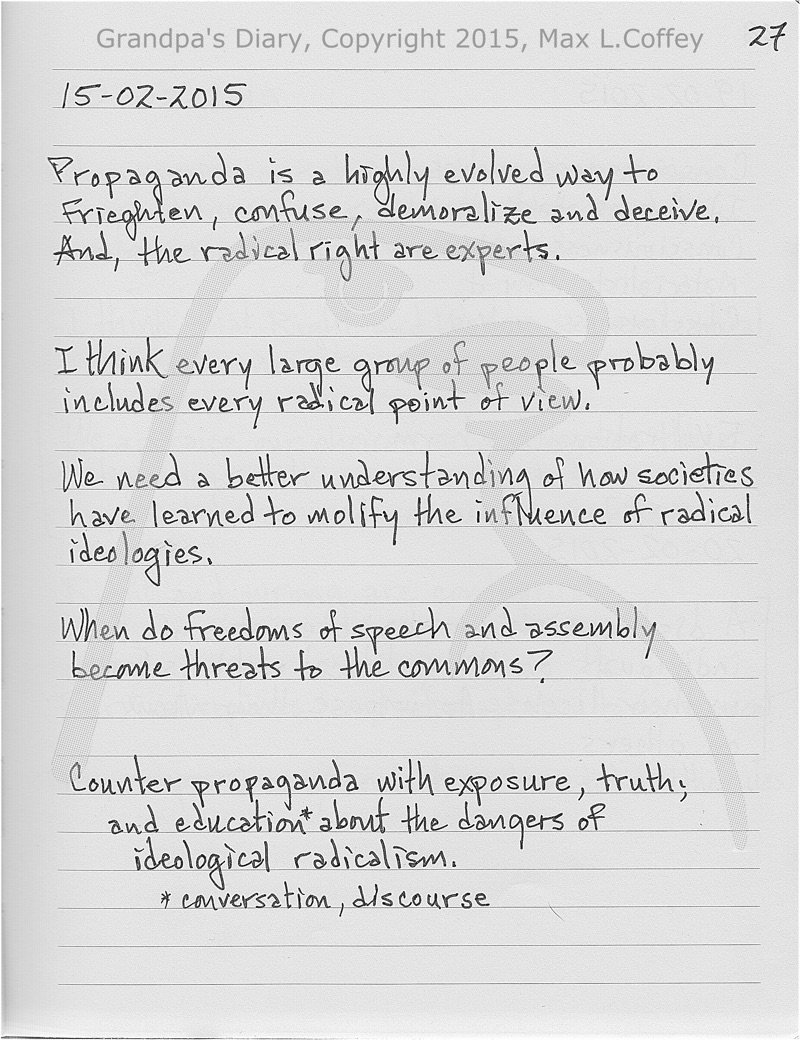 Grandpa's Diary, Copyright 2015, Max L.Coffey
27
15-02-2015
Propaganda is a highly evolved way to
Frieghten, confuse, demoralize and deceive.
And, the radical right are experts.
I think every large group of people probably
includes every radical point of view.
We need a better understanding of how societies
have learned to molify the influence of radical
ideologies.
When do freedoms of speech and assembly
become threats to the commons?
Counter propaganda with exposure, truth;
and education* about the dangers of
ideological radicalism.
* conversation, discourse